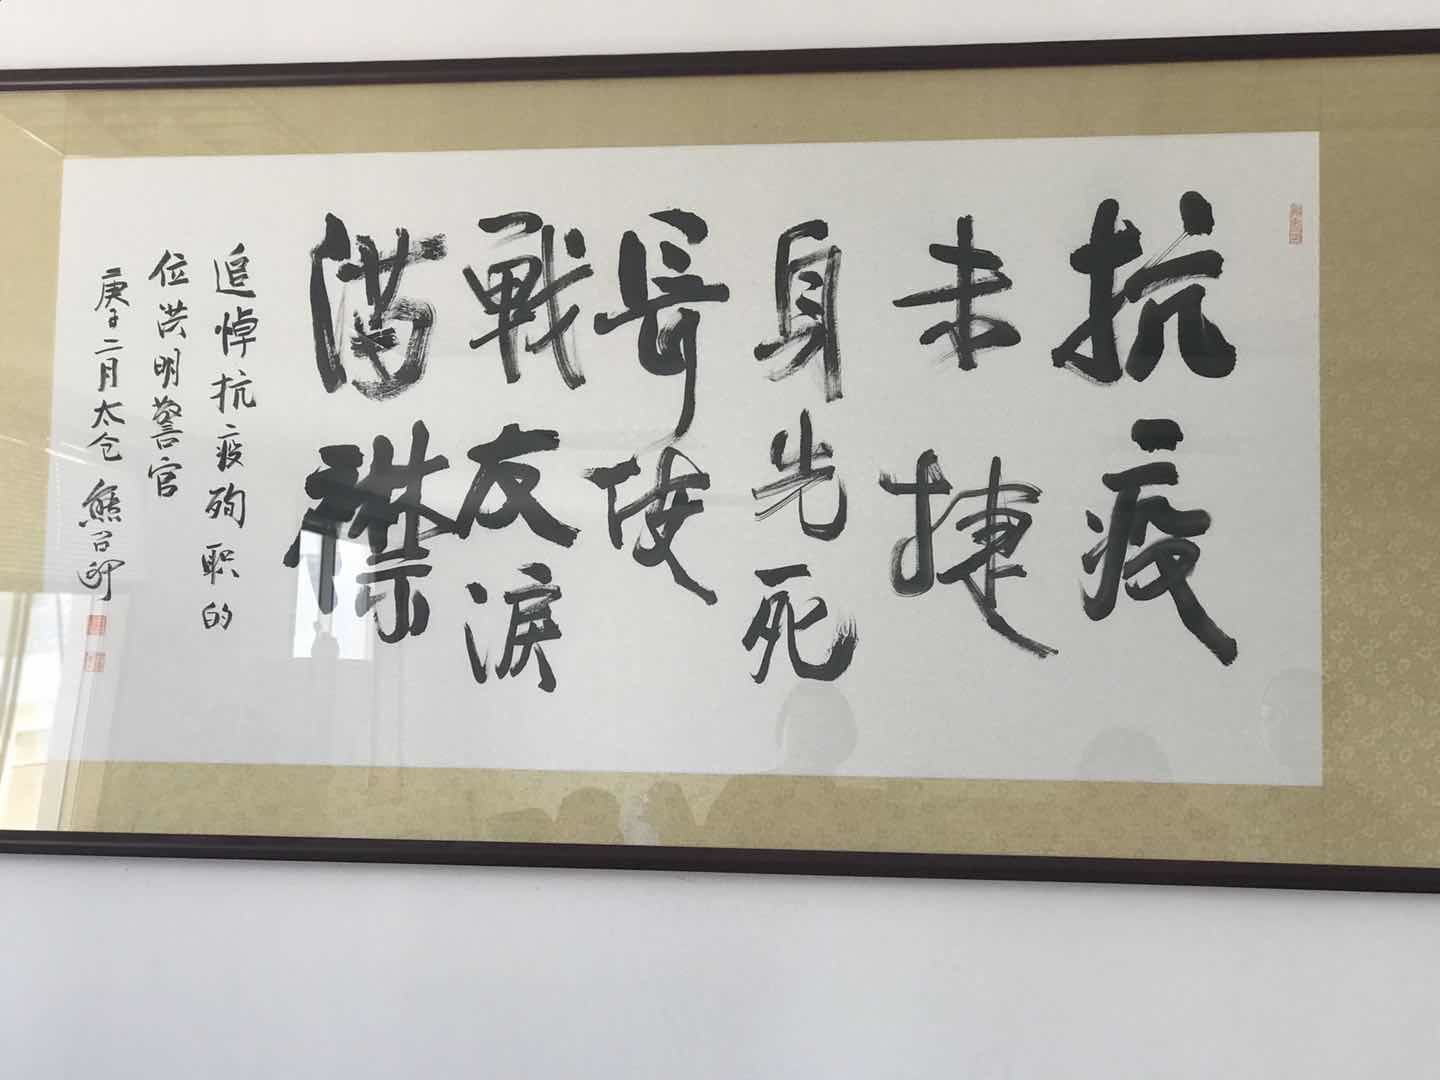 抗疫
未捷
身先死
長使
戰友淚
满襟
追悼抗疫殉职的
位洪明警官
庚子二月太仓 熊召政